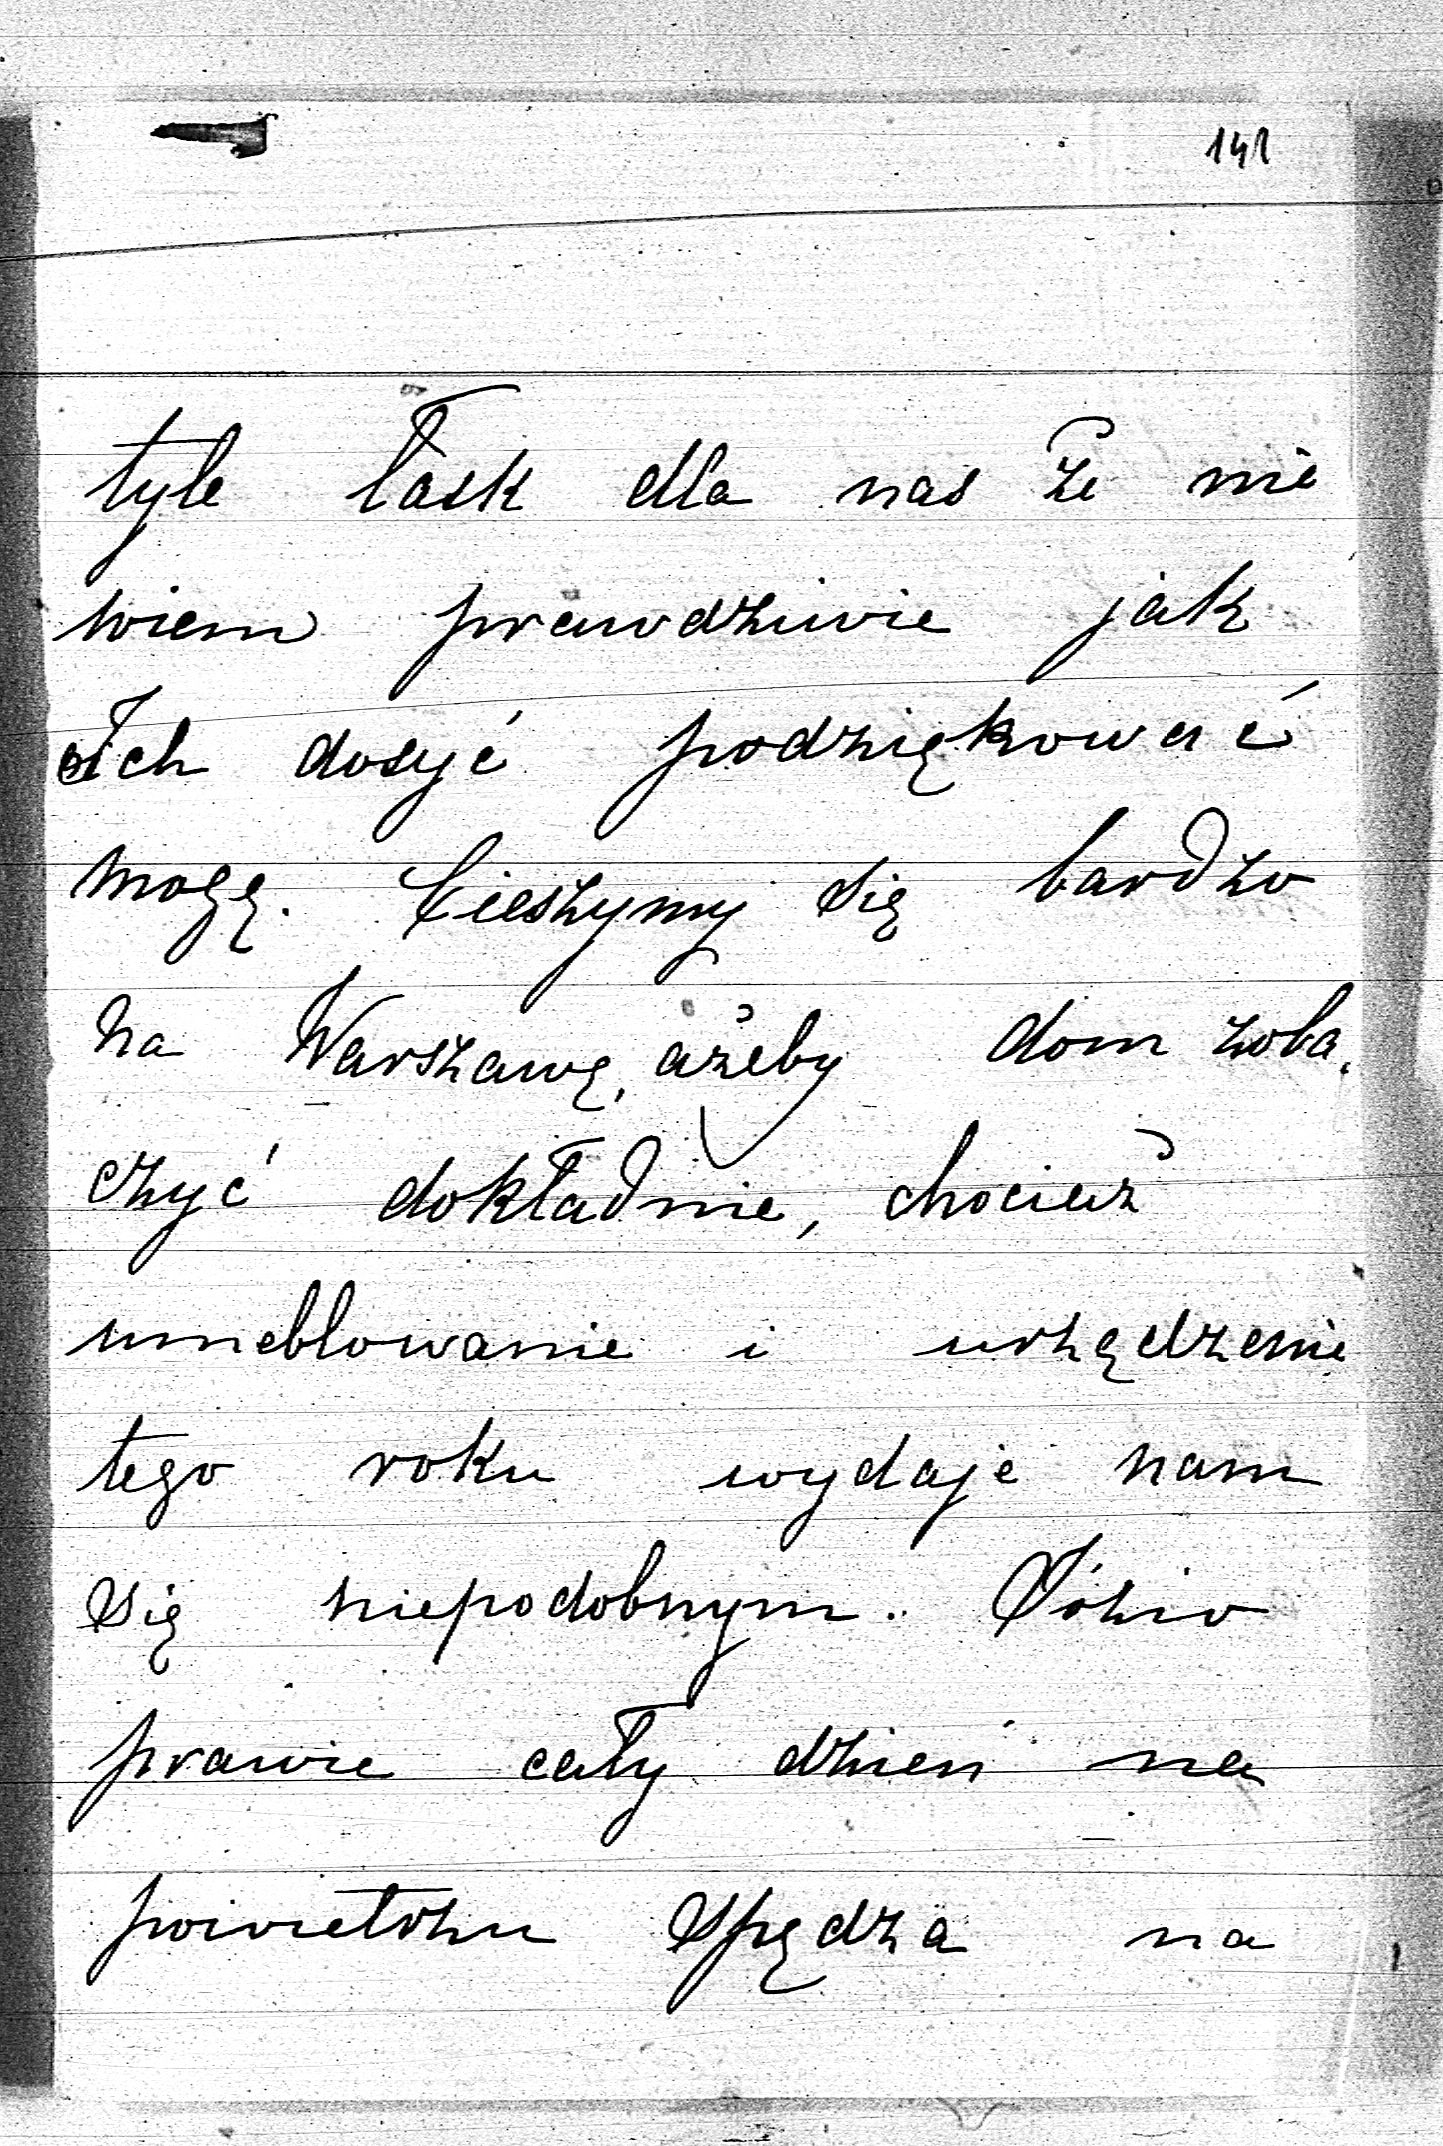 141
tyle łask dla nas że nie
wiem prawdziwie jak
Ich dosyć podziękować
mogę. Cieszymy się bardzo
na Warszawę, ażeby dom zoba,
czyć dokładnie, chociaż
umeblowanie i urzędzenie
tego roku wydaje nam
się niepodobnym. Józio
prawie cały dzień na
powietrzu spędza na